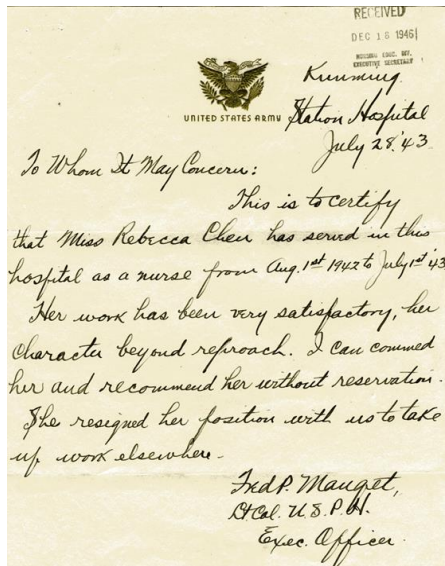 RECEIVED
DEC 18 1946
NURSING EDUC. DIV.
EXECUTIVE SECRETARY
Kunming
UNITED STATES ARMY
Station Hospital
July 28, '43
To Whom It May Concern:
This is to certify
that Miss Rebecca Chen has served in this
hospital as a nurse from Aug. 1st 1942 to July 1st '43
Her work has been very satisfactory, her
character beyond reproach. I can commed
her and recommend her without reservation.
She resigned her position with us to take
up work elsewhere.
Fred P. Manget,
Lt Col. U.S.P.H.
Exec. Officer.